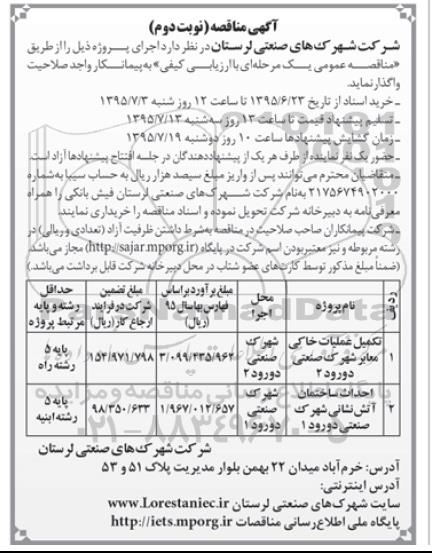 آگهی مناقصه (نوبت دوم)
شرکت شهرک‌های صنعتی لرستان در نظر دارد اجرای پروژه ذیل را از طریق
«مناقصه عمومی یک مرحله‌ای با ارزیابی کیفی» به پیمانکار واجد صلاحیت
واگذار نماید.
ـ خرید اسناد از تاریخ ۱۳۹۵/۶/۲۳ تا ساعت ۱۲ روز شنبه ۱۳۹۵/۷/۳
ـ تسلیم پیشنهاد قیمت تا ساعت ۱۳ روز سه‌شنبه ۱۳۹۵/۷/۱۳
ـ زمان گشایش پیشنهادها ساعت ۱۰ روز دوشنبه ۱۳۹۵/۷/۱۹
ـ حضور یک نفر نماینده از طرف هر یک از پیشنهاددهندگان در جلسه افتتاح پیشنهادها آزاد است.
ـ متقاضیان محترم می‌توانند پس از واریز مبلغ سیصد هزار ریال به حساب سیبا به شماره
۲۱۷۵۶۷۴۹۰۲۰۰۰ به نام شرکت شهرک‌های صنعتی لرستان فیش بانکی را همراه
معرفی‌نامه به دبیرخانه شرکت تحویل نموده و اسناد مناقصه را خریداری نمایند.
ـ شرکت پیمانکاران صاحب صلاحیت در مناقصه به شرط داشتن ظرفیت آزاد (تعدادی و ریالی) در
رشته مربوطه و نیز معتبر بودن اسم شرکت در پایگاه (http://sajar.mporg.ir) مجاز می‌باشد.
(ضمناً مبلغ مذکور توسط کارت‌های عضو شتاب در محل دبیرخانه شرکت قابل برداشت می‌باشد.)
ردیف | نام پروژه | محل اجرا | مبلغ برآورد بر اساس فهارس بهاسال ۹۵ (ریال) | مبلغ تضمین شرکت در فرایند ارجاع کار (ریال) | حداقل رشته و پایه مرتبط پروژه
۱ | تکمیل عملیات خاکی معابر شهرک صنعتی دورود ۲ | شهرک صنعتی دورود ۲ | ۳/۰۹۹/۴۳۵/۹۶۴ | ۱۵۴/۹۷۱/۷۹۸ | پایه ۵ رشته راه
۲ | احداث ساختمان آتش نشانی شهرک صنعتی دورود ۱ | شهرک صنعتی دورود ۱ | ۱/۹۶۷/۰۱۲/۶۵۷ | ۹۸/۳۵۰/۶۳۳ | پایه ۵ رشته ابنیه
شرکت شهرک‌های صنعتی لرستان
آدرس: خرم‌آباد میدان ۲۲ بهمن بلوار مدیریت پلاک ۵۱ و ۵۳
آدرس اینترنتی:
سایت شهرک‌های صنعتی لرستان www.Lorestaniec.ir
پایگاه ملی اطلاع‌رسانی مناقصات http://iets.mporg.ir